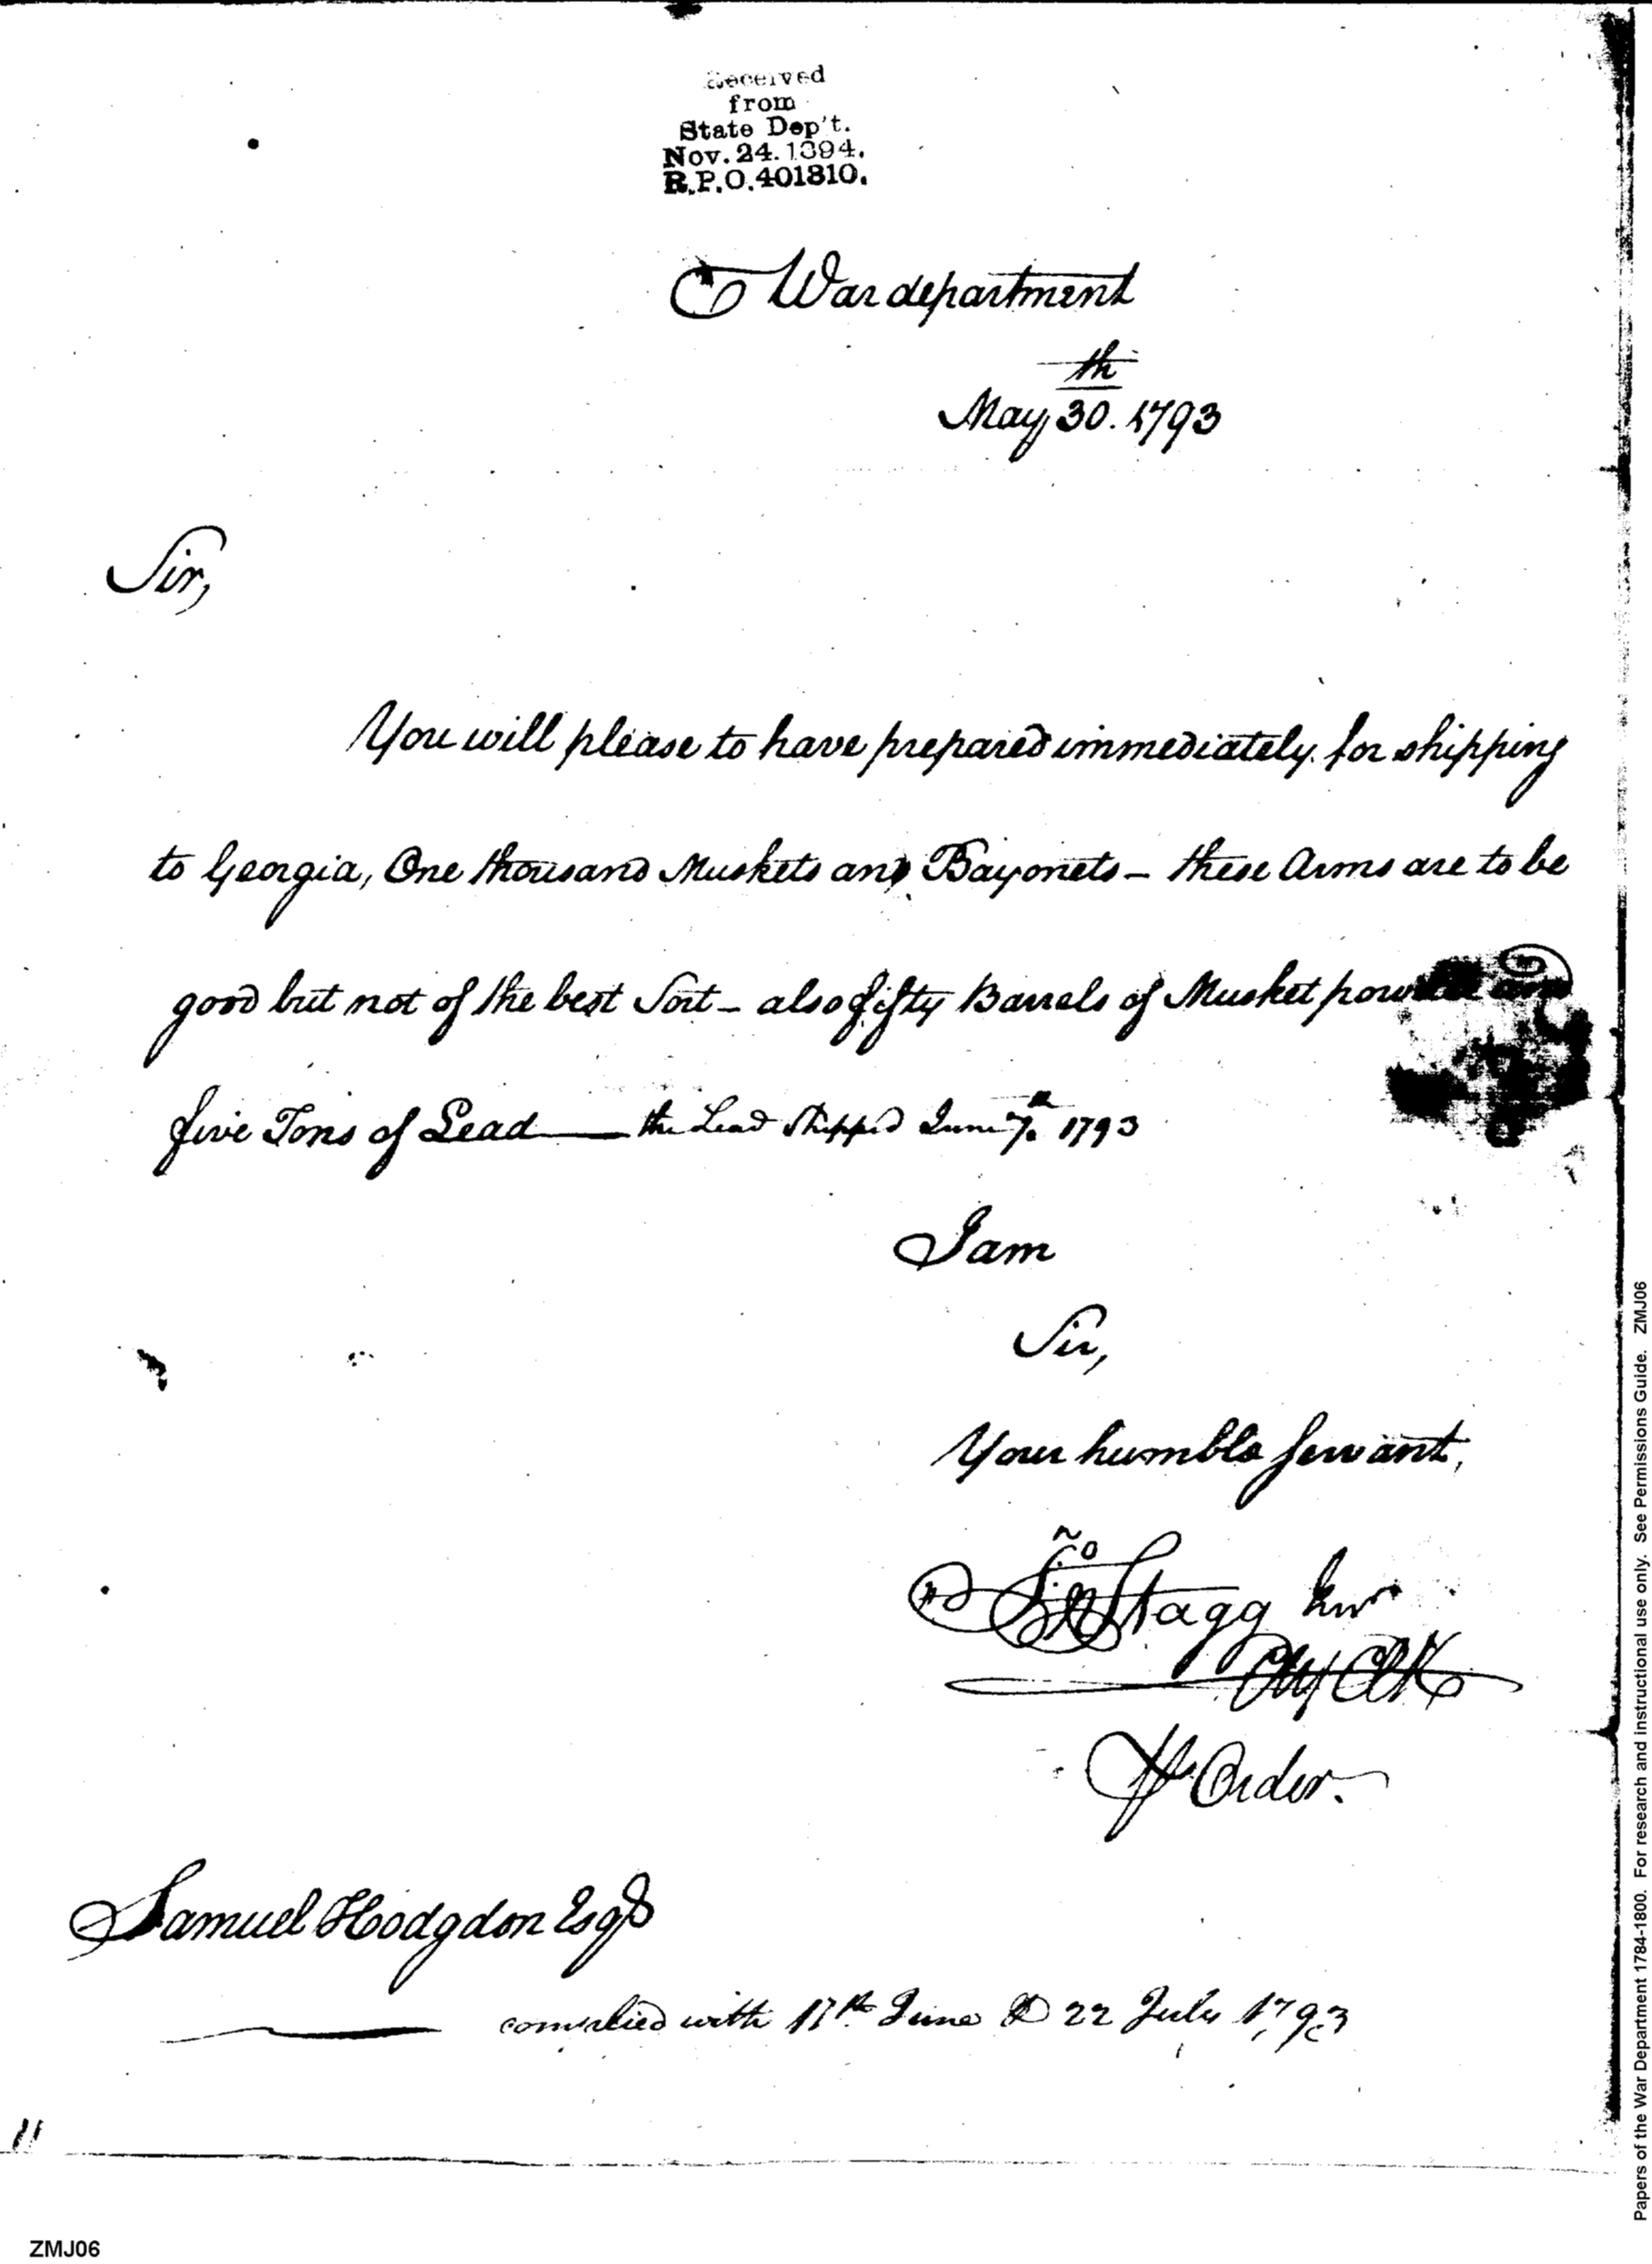 Received
from
State Dep't.
Nov. 24. 1894.
R.P.O. 401810.
War department
May 30.th 1793
Sir,
You will please to have prepared immediately for shipping
to Georgia, One thousand Muskets and Bayonets - these Arms are to be
good but not of the best Sort - also fifty Barrels of Musket powder and
five Tons of Lead — the Lead Shipped June 7.th 1793
I am
Sir,
Your humble Servant,
Jno Stagg Junr
Chf Clk
Pr Order.
Samuel Hodgdon Esqr
complied with 11th June & 22 July 1793
11
ZMJ06
Papers of the War Department 1784-1800. For research and instructional use only. See Permissions Guide. ZMJ06